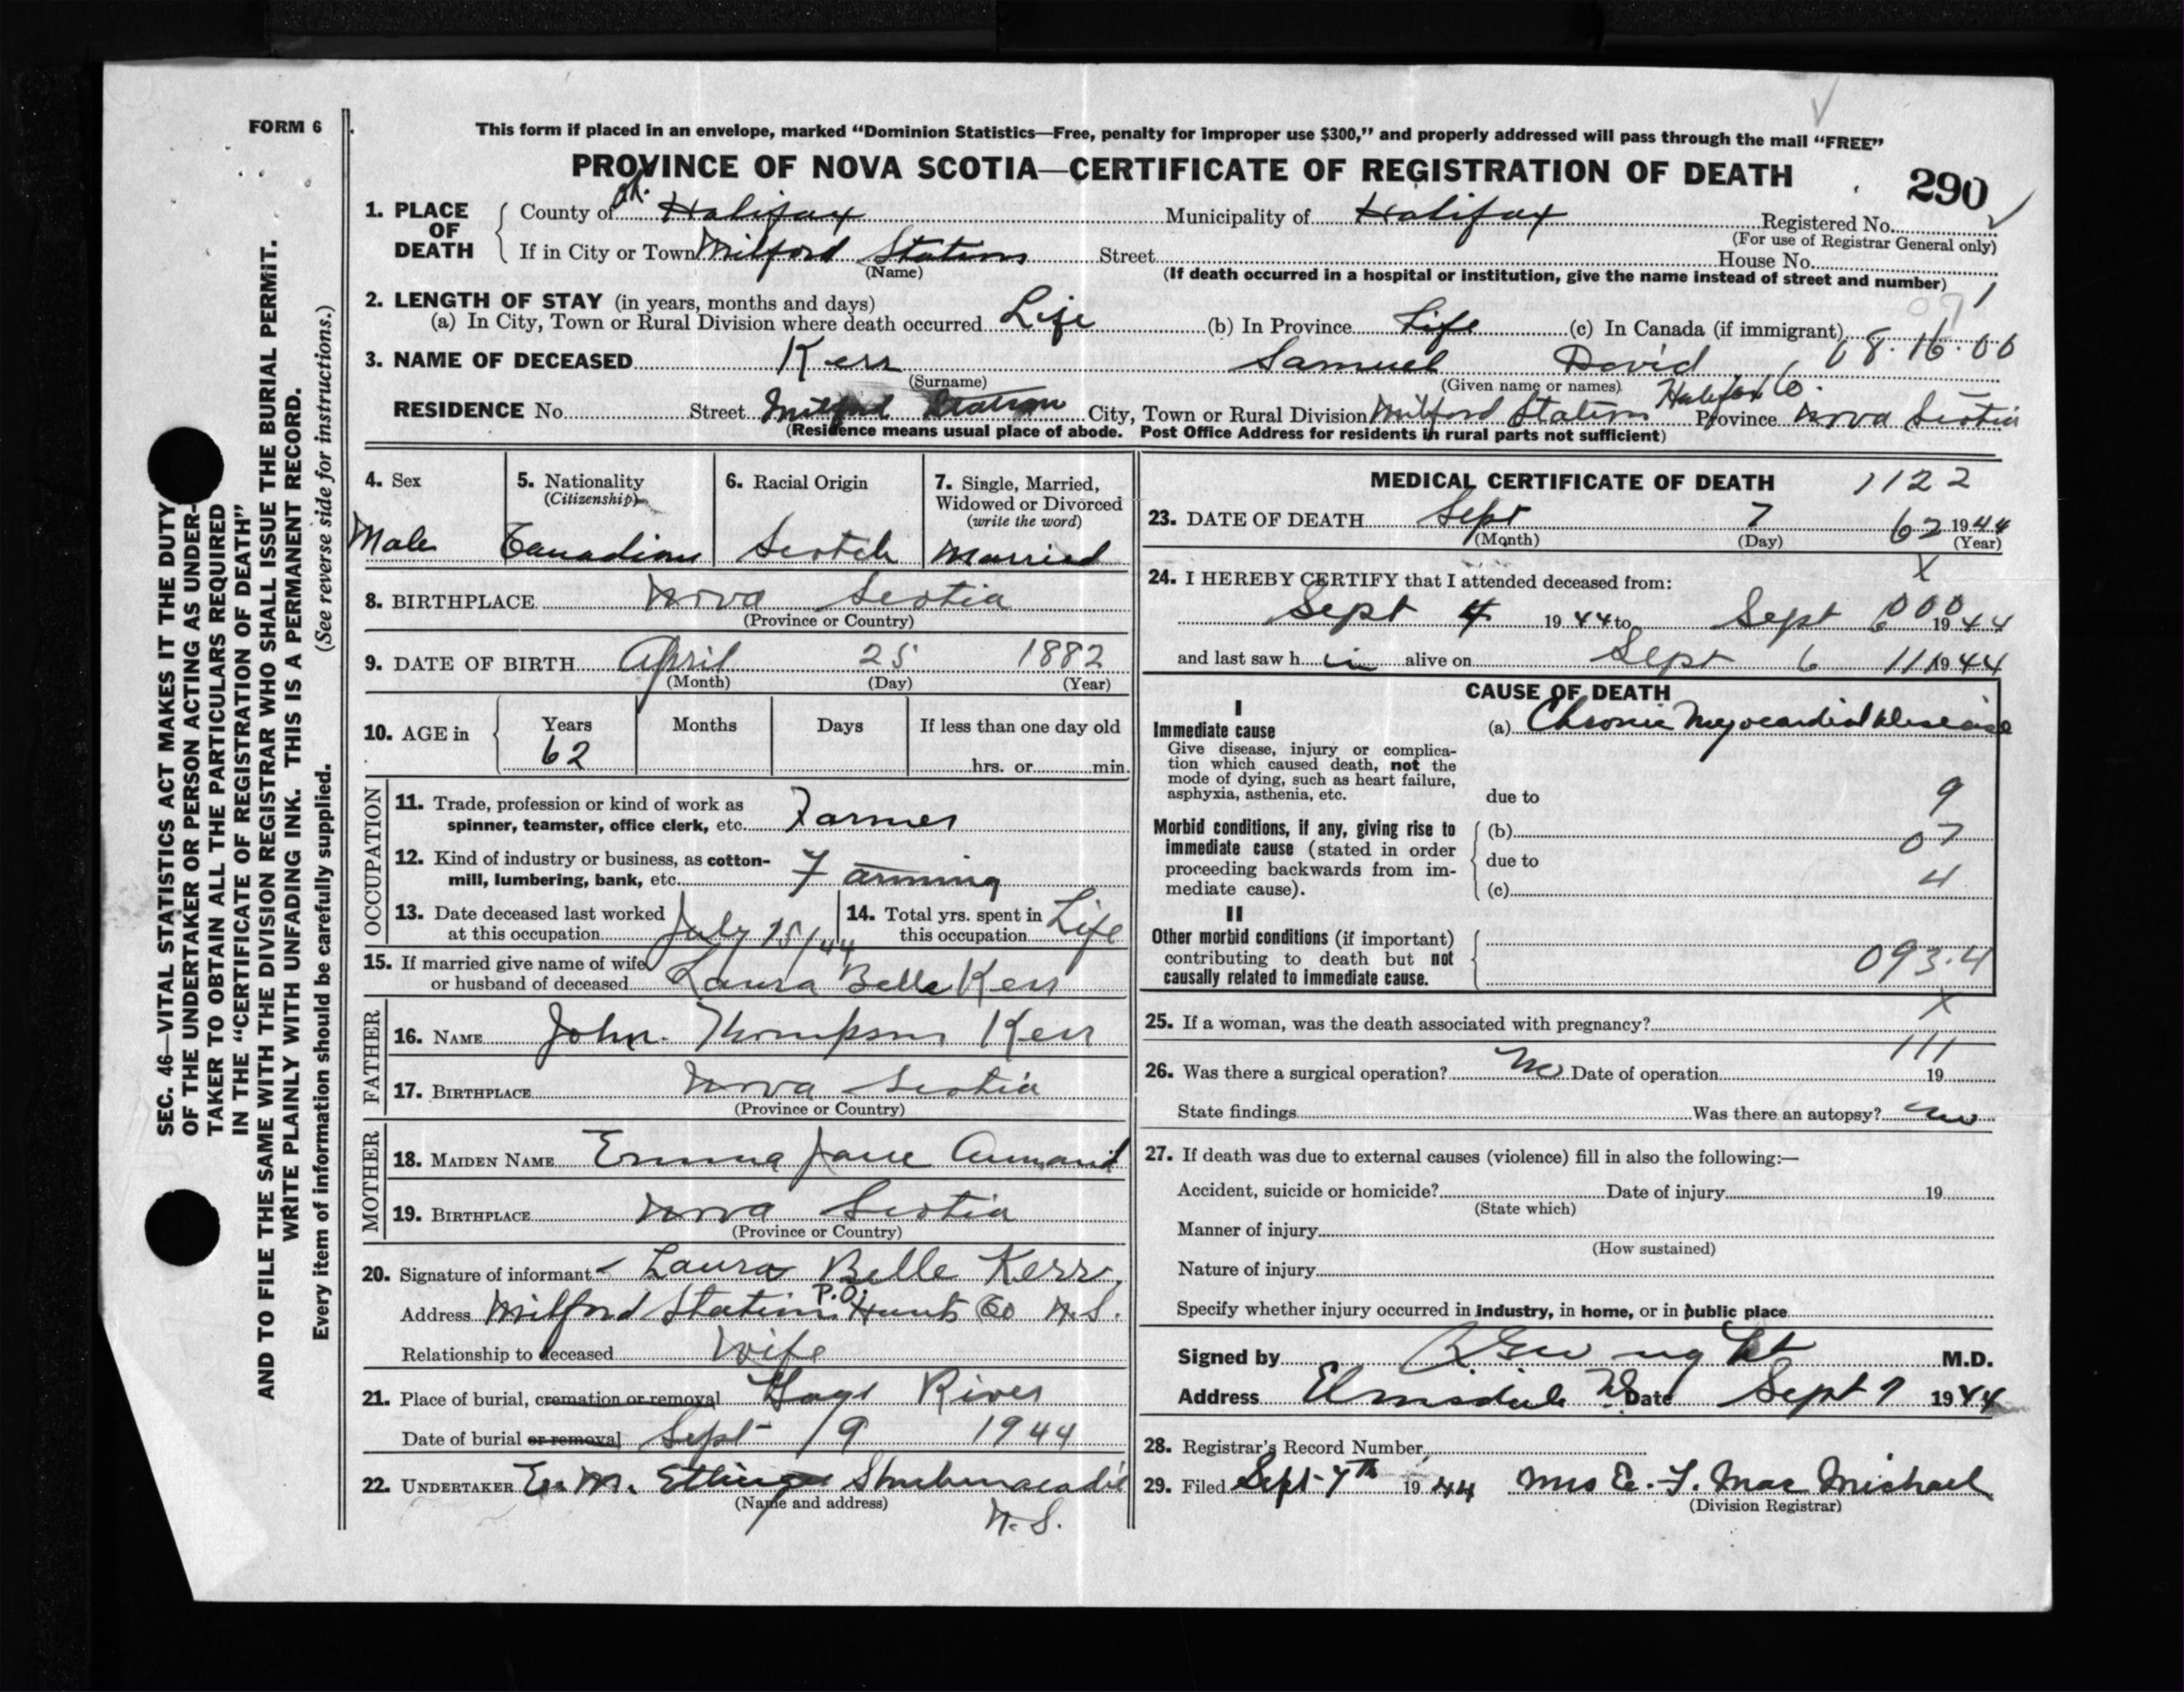 FORM 6
This form if placed in an envelope, marked “Dominion Statistics—Free, penalty for improper use $300,” and properly addressed will pass through the mail “FREE”
PROVINCE OF NOVA SCOTIA—CERTIFICATE OF REGISTRATION OF DEATH
290
1. PLACE OF DEATH
County of Halifax Municipality of Halifax Registered No.
(For use of Registrar General only)
If in City or Town Milford Station Street House No.
(Name) (If death occurred in a hospital or institution, give the name instead of street and number)
2. LENGTH OF STAY (in years, months and days)
(a) In City, Town or Rural Division where death occurred Life (b) In Province Life (c) In Canada (if immigrant)
3. NAME OF DECEASED Kerr Samuel David 08.16.00
(Surname) (Given name or names)
Halifax Co.
RESIDENCE No. Street Milford Station City, Town or Rural Division Milford Station Province Nova Scotia
(Residence means usual place of abode. Post Office Address for residents in rural parts not sufficient)
4. Sex
Male
5. Nationality
(Citizenship)
Canadian
6. Racial Origin
Scotch
7. Single, Married,
Widowed or Divorced
(write the word)
Married
8. BIRTHPLACE Nova Scotia
(Province or Country)
9. DATE OF BIRTH April 25 1882
(Month) (Day) (Year)
10. AGE in Years Months Days If less than one day old
62 hrs. or min.
OCCUPATION
11. Trade, profession or kind of work as
spinner, teamster, office clerk, etc. Farmer
12. Kind of industry or business, as cotton-
mill, lumbering, bank, etc. Farming
13. Date deceased last worked
at this occupation July 15/44
14. Total yrs. spent in
this occupation Life
15. If married give name of wife
or husband of deceased Laura Belle Kerr
FATHER
16. NAME John Thompson Kerr
17. BIRTHPLACE Nova Scotia
(Province or Country)
MOTHER
18. MAIDEN NAME Emma Jane
19. BIRTHPLACE Nova Scotia
(Province or Country)
20. Signature of informant Laura Belle Kerr,
Address Milford Station P.O. Hants Co N.S.
Relationship to deceased Wife
21. Place of burial, cremation or removal Gays River
Date of burial or removal Sept 9 1944
22. UNDERTAKER E. M. Ettinger Shubenacadie
(Name and address)
N.S.
MEDICAL CERTIFICATE OF DEATH 1122
23. DATE OF DEATH Sept 7 62 1944
(Month) (Day) (Year)
X
24. I HEREBY CERTIFY that I attended deceased from:
Sept 4 1944 to Sept 6 000 1944
and last saw h im alive on Sept 6 111 1944
CAUSE OF DEATH
I
Immediate cause
Give disease, injury or complica-
tion which caused death, not the
mode of dying, such as heart failure,
asphyxia, asthenia, etc.
(a) Chronic Myocardial Disease
due to 9
Morbid conditions, if any, giving rise to
immediate cause (stated in order
proceeding backwards from im-
mediate cause).
(b) 07
due to
(c) 4
II
Other morbid conditions (if important)
contributing to death but not
causally related to immediate cause.
093.4
X
25. If a woman, was the death associated with pregnancy?
111
26. Was there a surgical operation? No Date of operation 19
State findings Was there an autopsy? No
27. If death was due to external causes (violence) fill in also the following:—
Accident, suicide or homicide? Date of injury 19
(State which)
Manner of injury
(How sustained)
Nature of injury
Specify whether injury occurred in industry, in home, or in public place
Signed by M.D.
Address Elmsdale NS Date Sept 7 1944
28. Registrar's Record Number
29. Filed Sept 7th 1944 Mrs E. F. Mac Michael
(Division Registrar)
SEC. 46—VITAL STATISTICS ACT MAKES IT THE DUTY
OF THE UNDERTAKER OR PERSON ACTING AS UNDER-
TAKER TO OBTAIN ALL THE PARTICULARS REQUIRED
IN THE “CERTIFICATE OF REGISTRATION OF DEATH”
AND TO FILE THE SAME WITH THE DIVISION REGISTRAR WHO SHALL ISSUE THE BURIAL PERMIT.
WRITE PLAINLY WITH UNFADING INK. THIS IS A PERMANENT RECORD.
Every item of information should be carefully supplied. (See reverse side for instructions.)